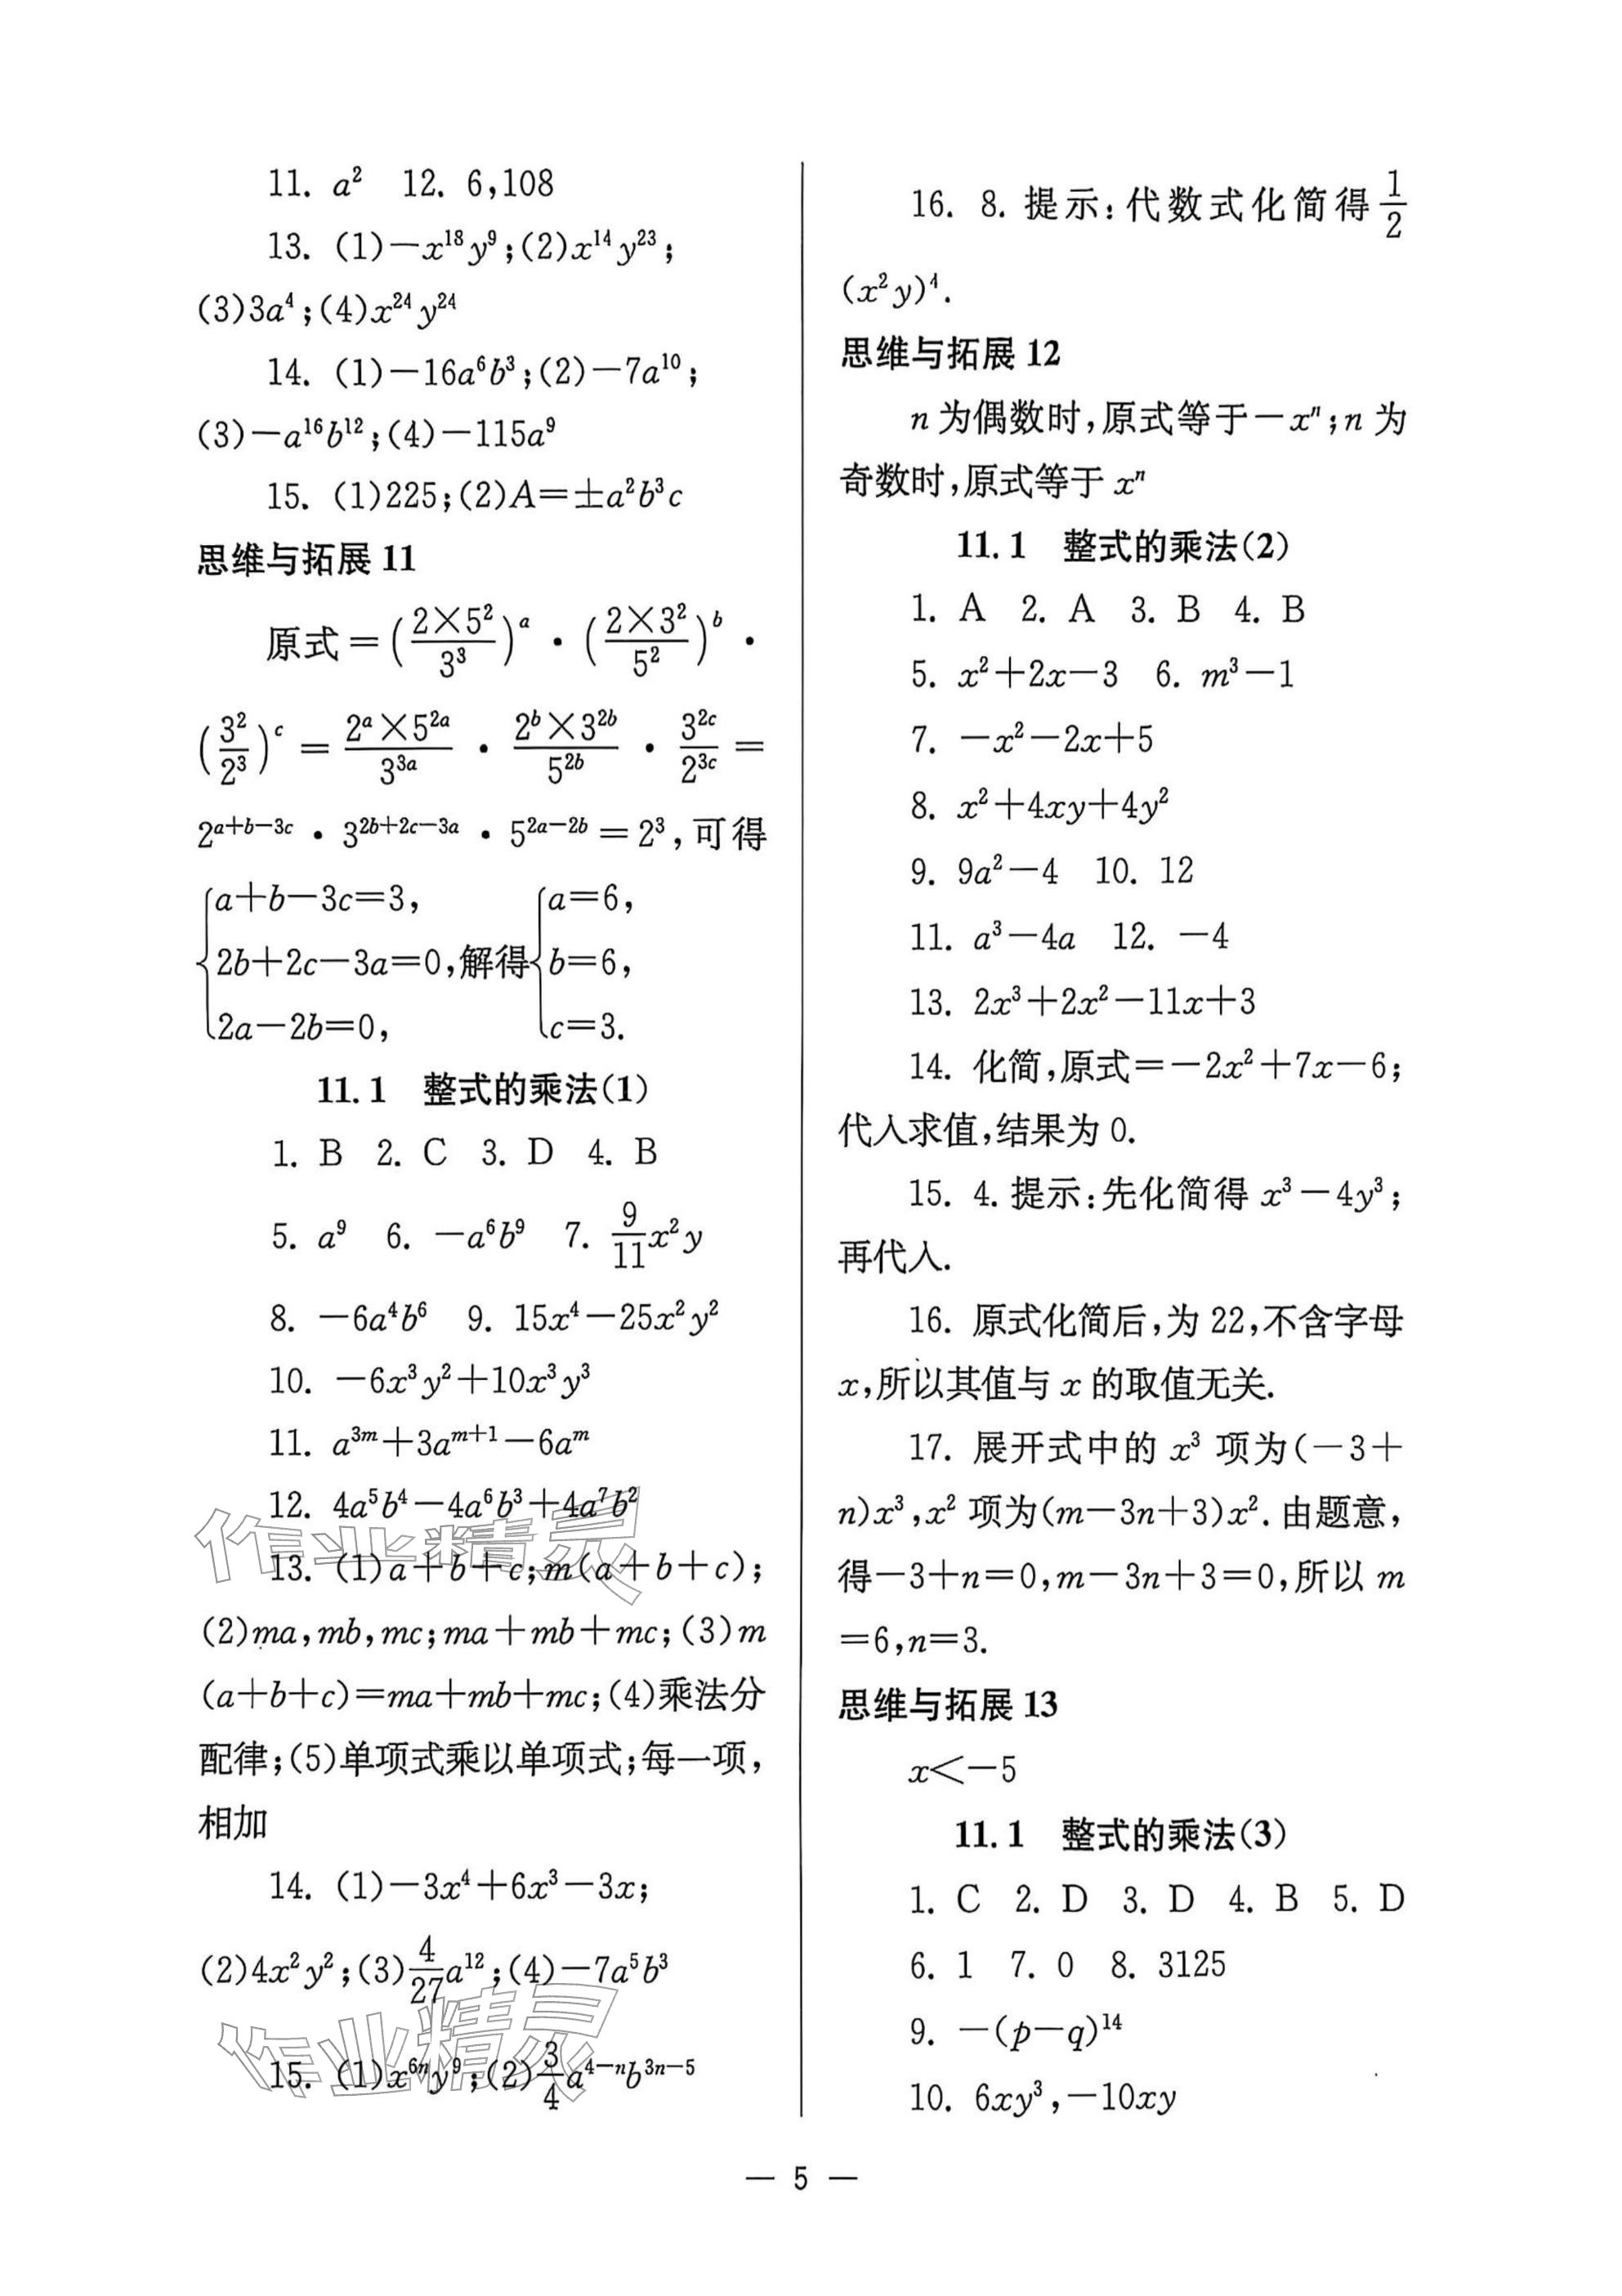 11. a² 12. 6,108
13. (1)−x¹⁸y⁹;(2)x¹⁴y²³;
(3)3a⁴;(4)x²⁴y²⁴
14. (1)−16a⁶b³;(2)−7a¹⁰;
(3)−a¹⁶b¹²;(4)−115a⁹
15. (1)225;(2)A=±a²b³c
思维与拓展 11
原式=(\frac{2×5²}{3³})^a·(\frac{2×3²}{5²})^b·
(\frac{3²}{2³})^c=\frac{2^a×5^{2a}}{3^{3a}}·\frac{2^b×3^{2b}}{5^{2b}}·\frac{3^{2c}}{2^{3c}}=
2^{a+b−3c}·3^{2b+2c−3a}·5^{2a−2b}=2³,可得
{a+b−3c=3, {a=6,
2b+2c−3a=0,解得 b=6,
2a−2b=0, c=3.
11.1 整式的乘法(1)
1. B 2. C 3. D 4. B
5. a⁹ 6. −a⁶b⁹ 7. \frac{9}{11}x²y
8. −6a⁴b⁶ 9. 15x⁴−25x²y²
10. −6x³y²+10x³y³
11. a^{3m}+3a^{m+1}−6a^m
12. 4a⁵b⁴−4a⁶b³+4a⁷b²
作业精灵
13. (1)a+b+c;m(a+b+c);
(2)ma,mb,mc;ma+mb+mc;(3)m
(a+b+c)=ma+mb+mc;(4)乘法分
配律;(5)单项式乘以单项式;每一项,
相加
14. (1)−3x⁴+6x³−3x;
(2)4x²y²;(3)\frac{4}{27}a¹²;(4)−7a⁵b³
作业精灵
15. (1)x^{6n}y⁹;(2)\frac{3}{4}a^{4−n}b^{3n−5}
16. 8. 提示:代数式化简得\frac{1}{2}
(x²y)⁴.
思维与拓展 12
n 为偶数时,原式等于−x^n;n 为
奇数时,原式等于 x^n
11.1 整式的乘法(2)
1. A 2. A 3. B 4. B
5. x²+2x−3 6. m³−1
7. −x²−2x+5
8. x²+4xy+4y²
9. 9a²−4 10. 12
11. a³−4a 12. −4
13. 2x³+2x²−11x+3
14. 化简,原式=−2x²+7x−6;
代入求值,结果为 0.
15. 4. 提示:先化简得 x³−4y³;
再代入.
16. 原式化简后,为 22,不含字母
x,所以其值与 x 的取值无关.
17. 展开式中的 x³ 项为(−3+
n)x³,x² 项为(m−3n+3)x². 由题意,
得−3+n=0,m−3n+3=0,所以 m
=6,n=3.
思维与拓展 13
x<−5
11.1 整式的乘法(3)
1. C 2. D 3. D 4. B 5. D
6. 1 7. 0 8. 3125
9. −(p−q)¹⁴
10. 6xy³,−10xy
— 5 —